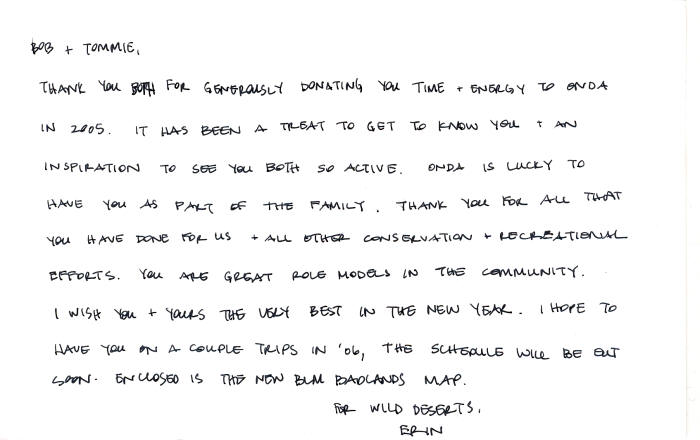 BOB + TOMMIE,
THANK YOU BOTH FOR GENEROUSLY DONATING YOU TIME + ENERGY TO ONDA
IN 2005. IT HAS BEEN A TREAT TO GET TO KNOW YOU + AN
INSPIRATION TO SEE YOU BOTH SO ACTIVE. ONDA IS LUCKY TO
HAVE YOU AS PART OF THE FAMILY. THANK YOU FOR ALL THAT
YOU HAVE DONE FOR US + ALL OTHER CONSERVATION + RECREATIONAL
EFFORTS. YOU ARE GREAT ROLE MODELS IN THE COMMUNITY.
I WISH YOU + YOURS THE VERY BEST IN THE NEW YEAR. I HOPE TO
HAVE YOU ON A COUPLE TRIPS IN '06, THE SCHEDULE WILL BE OUT
SOON. ENCLOSED IS THE NEW BLM BADLANDS MAP.
FOR WILD DESERTS,
ERIN